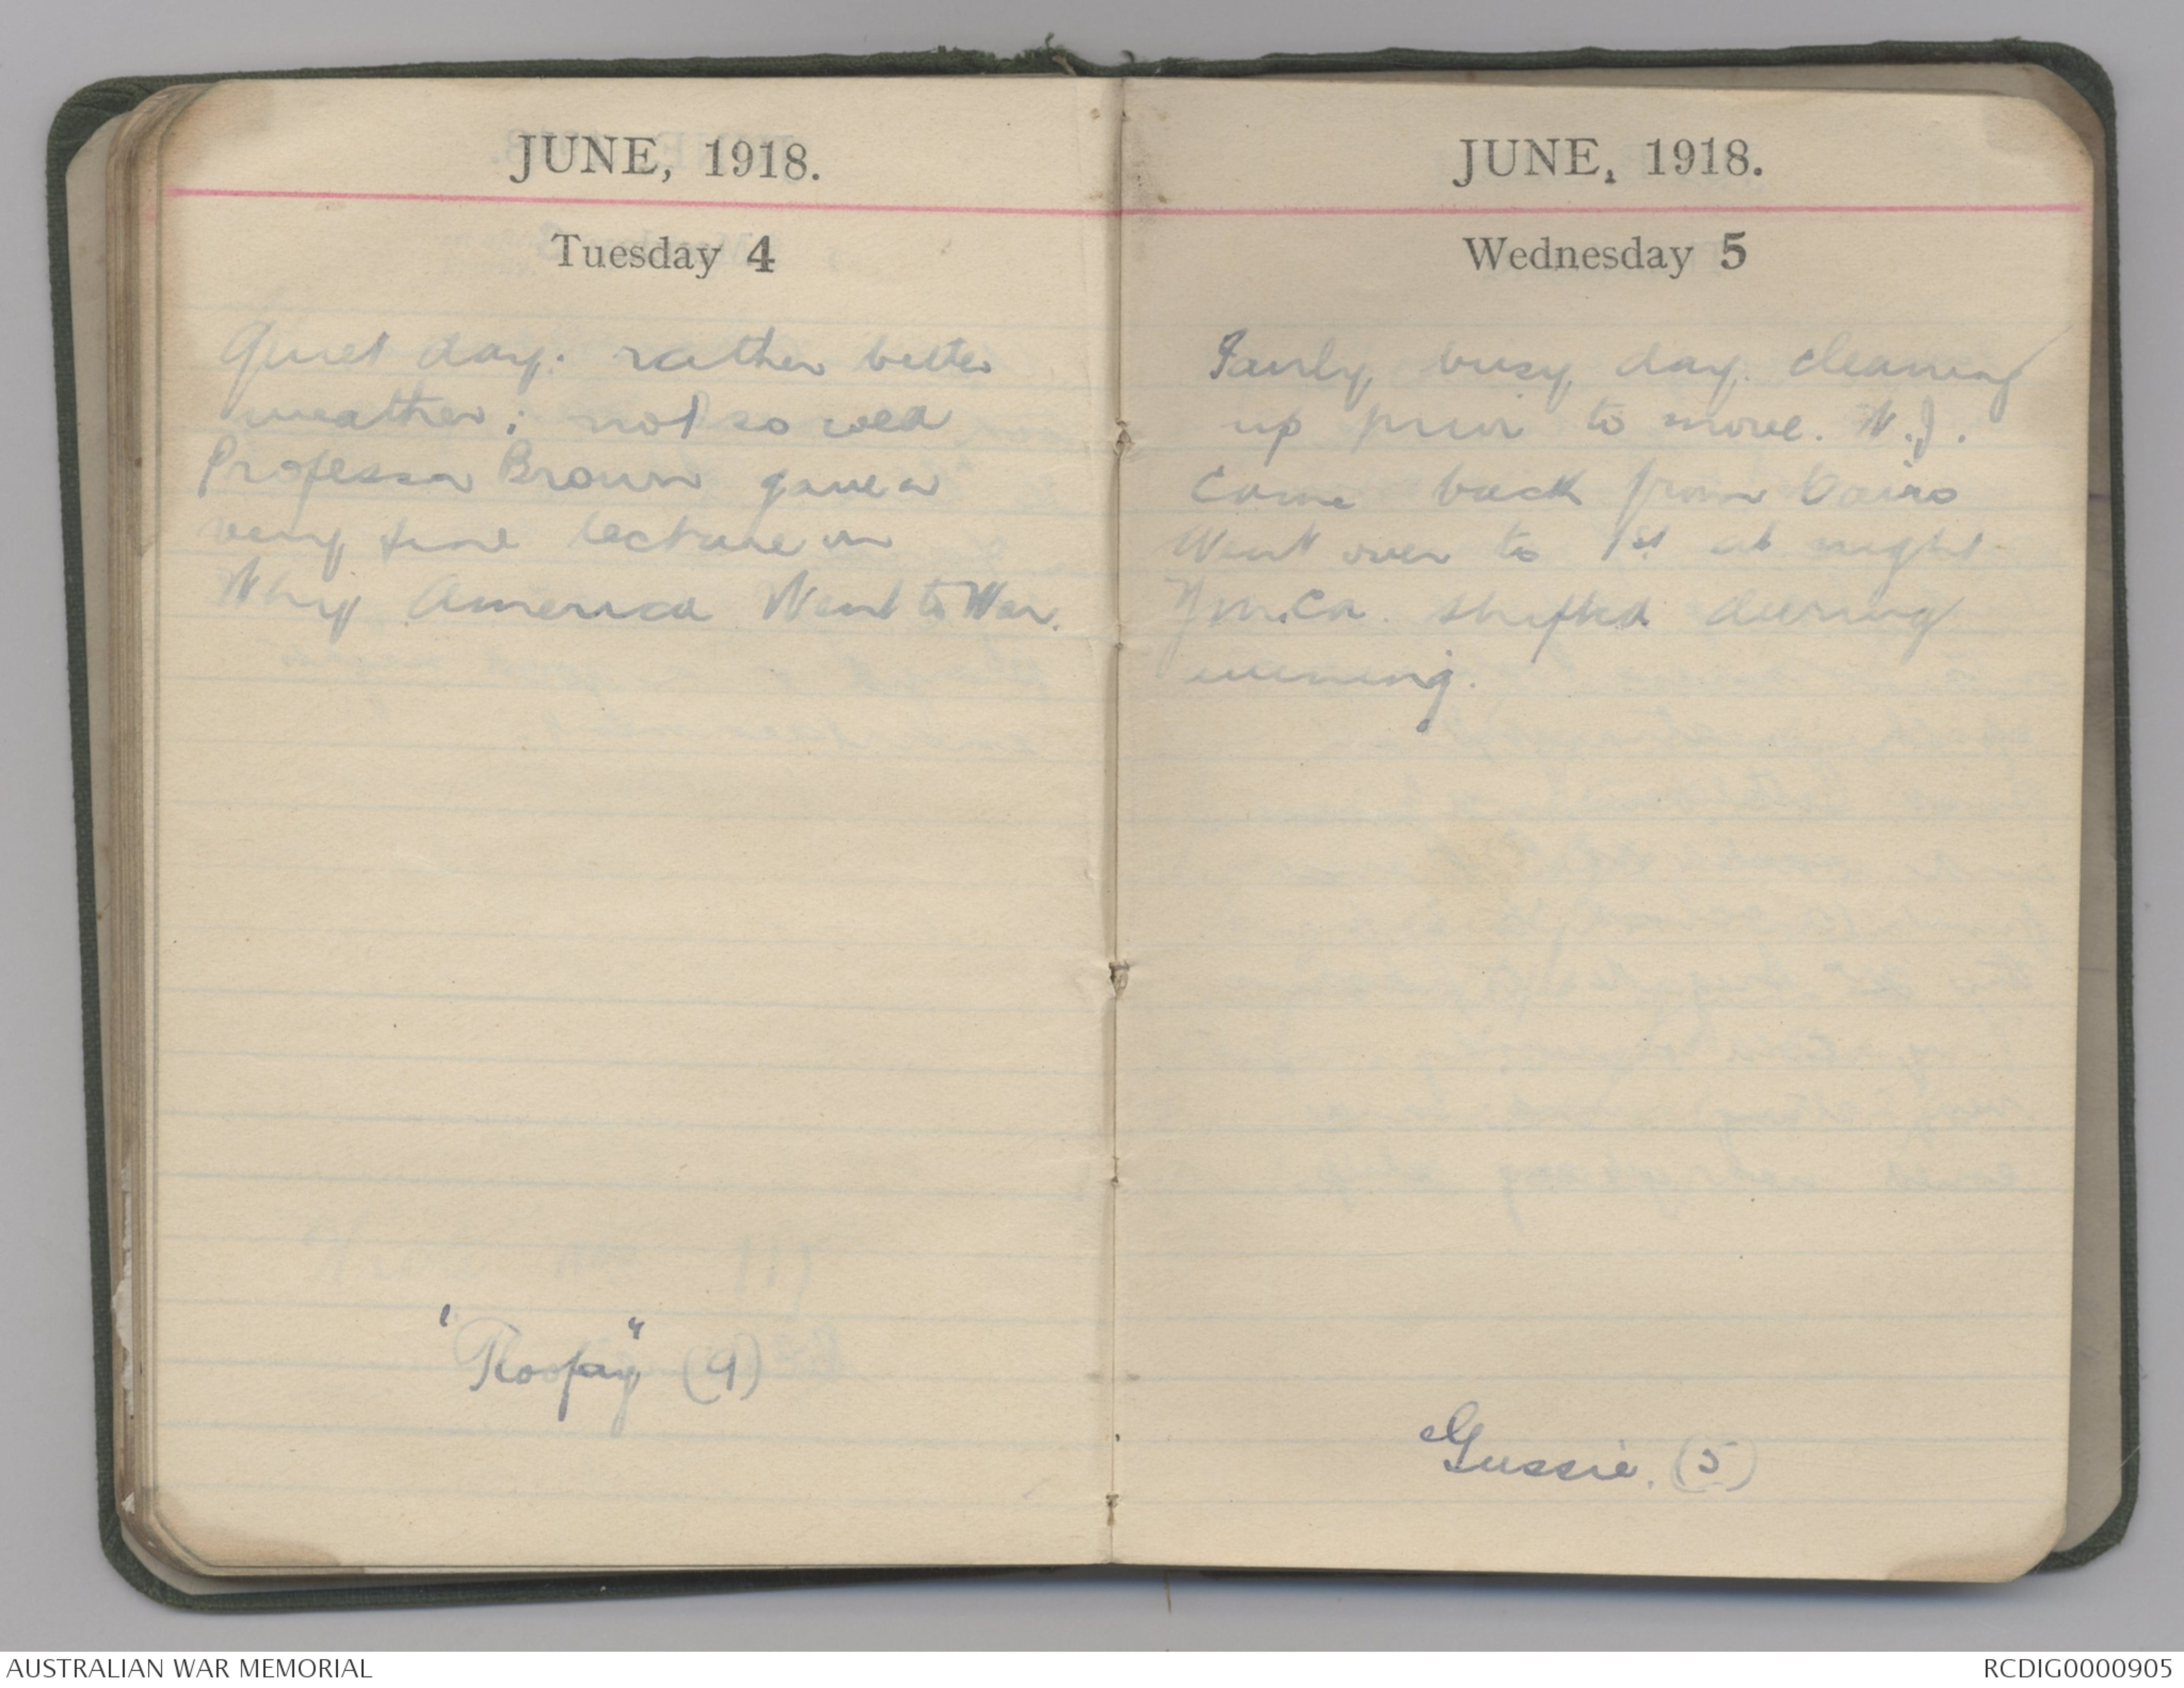 JUNE, 1918.
Tuesday 4
Quiet day: rather better
weather; not so
Professor Brown gave a
very fine lecture on
Why America Went to War.
"Roofay" (9)
JUNE, 1918.
Wednesday 5
Fairly busy day cleaning
up prior to move. W.J.
Came back from Cairo
Went over to 1st at night
Y.m.C.a. shifted during
evening.
Gussie. (5)
AUSTRALIAN WAR MEMORIAL
RCDIG0000905